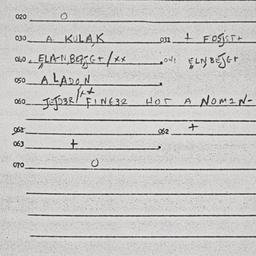 020 O
030 A KULAK 031 + FOSIST+
040 ELAN,BEJGT/xx 041 ELNBEJGT
050 ALADON
060 FINGER NOT A NOMIN-
061 062 +
063 +
070 O